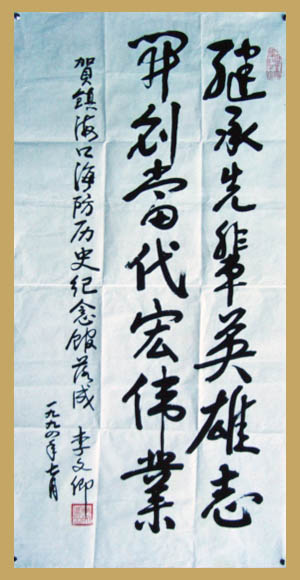 継承先辈英雄志
开创當代宏伟業
賀鎮海口海防历史纪念馆落成 李文卿
一九九四年七月